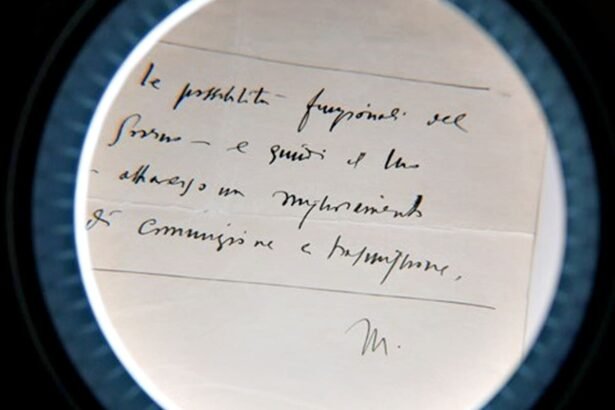 le possibilità funzionali del
Governo – e quindi il suo
– attraverso un miglioramento
di comunicazione e trasmissione.
M.